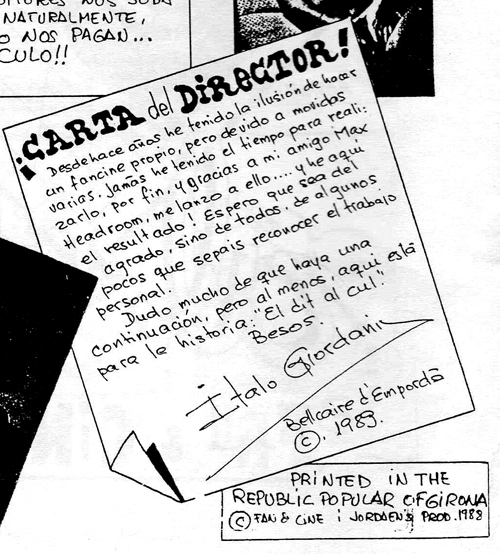 NATURALMENTE,
NOS PAGAN...
CULO!!
¡CARTA del DIRECTOR!
Desde hace años he tenido la ilusión de hacer
un fancine propio, pero devido a movidas
varias, jamás he tenido el tiempo para reali-
zarlo, por fin, y gracias a mi amigo Max
Headroom, me lanzo a ello.... y he aquí
el resultado! Espero que sea del
agrado, sino de todos, de algunos
pocos que sepais reconocer el trabajo
personal.
Dudo mucho de que haya una
continuación, pero al menos, aquí está
para la historia: "El dit al cul".
Besos.
Italo Giordani
Bellcaire d'Empordà
©. 1989.
PRINTED IN THE
REPUBLIC POPULAR OF GIRONA
© FAN & CINE i JORDAEN'S PROD. 1988